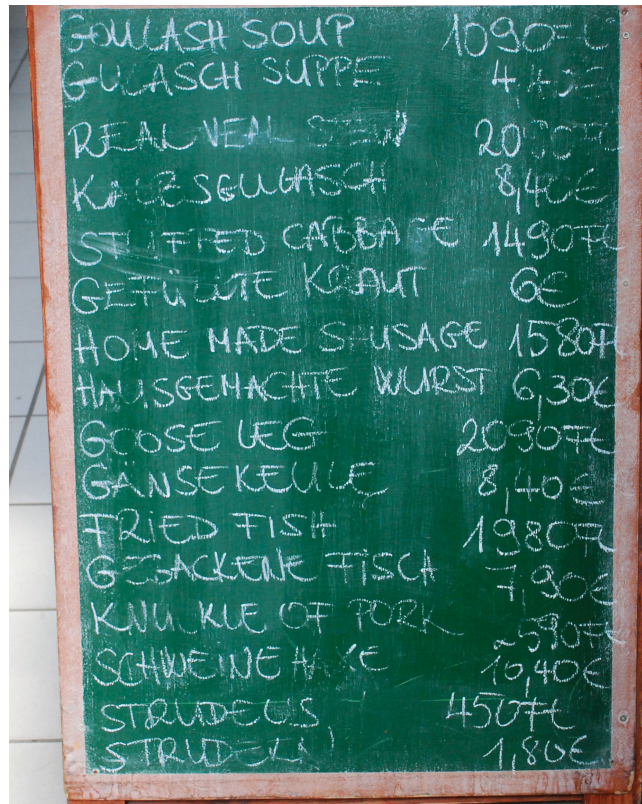 GOULASH SOUP 1090Ft
GULASCH SUPPE
REAL VEAL STEW 2090Ft
KALBSGULASCH 8,40€
STUFFED CABBAGE 1490Ft
GEFÜLLTE KRAUT 6€
HOME MADE SAUSAGE 1580Ft
HAUSGEMACHTE WURST 6,30€
GOOSE LEG 2090Ft
GÄNSEKEULE 8,40€
FRIED FISH 1980Ft
GEBACKENE FISCH 7,90€
KNUCKLE OF PORK 2590Ft
SCHWEINEHAXE 10,40€
STRUDELS 450Ft
STRUDELN 1,80€